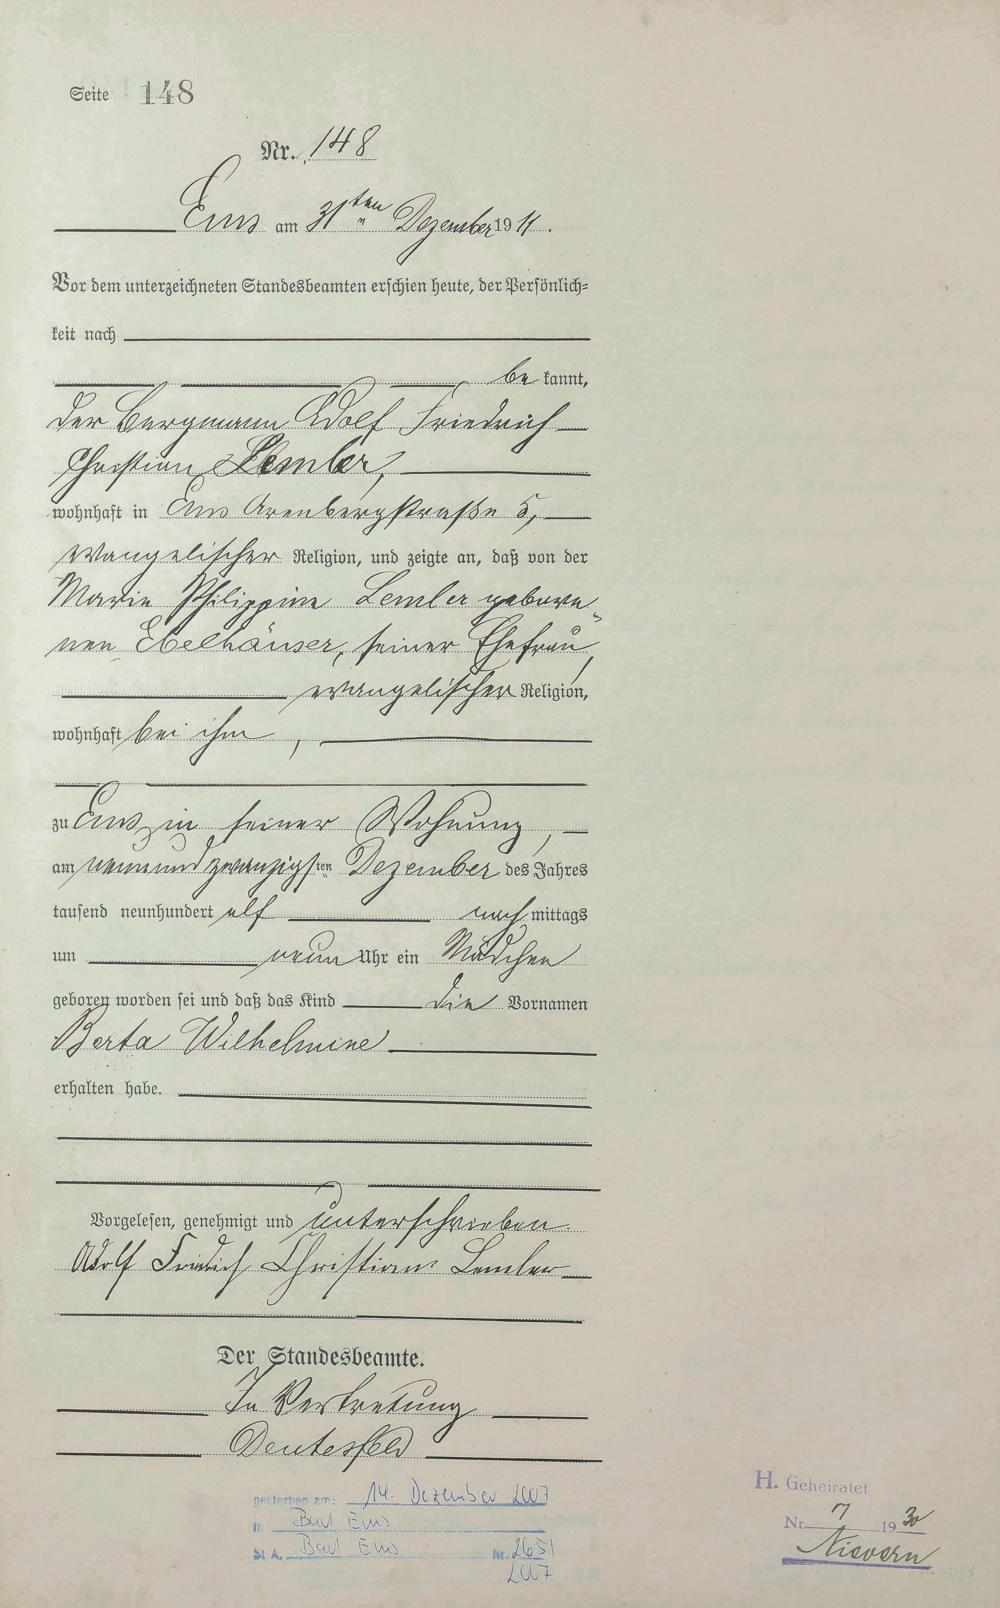 Seite 148
Nr. 148
Ems am 31ten Dezember 1911.
Vor dem unterzeichneten Standesbeamten erschien heute, der Persönlich-
keit nach
be kannt,
der Bergmann Adolf Friedrich
Christian Lemler,
wohnhaft in Ems Arenbergstraße 5,
evangelischer Religion, und zeigte an, daß von der
Marie Philippine Lemler gebore-
nen Ebelhäuser, seiner Ehefrau,
evangelischer Religion,
wohnhaft bei ihm,
zu Ems in seiner Wohnung,
am neunundzwanzigsten Dezember des Jahres
tausend neunhundert elf nach mittags
um neun Uhr ein Mädchen
geboren worden sei und daß das Kind die Vornamen
Berta Wilhelmine
erhalten habe.
Vorgelesen, genehmigt und unterschrieben.
Adolf Friedrich Christian Lemler
Der Standesbeamte.
In Vertretung
gestorben am: 14. Dezember 2007
in Bad Ems
St. A. Bad Ems Nr. 2651
2007
H. Geheiratet
Nr. 7 1930
Nievern